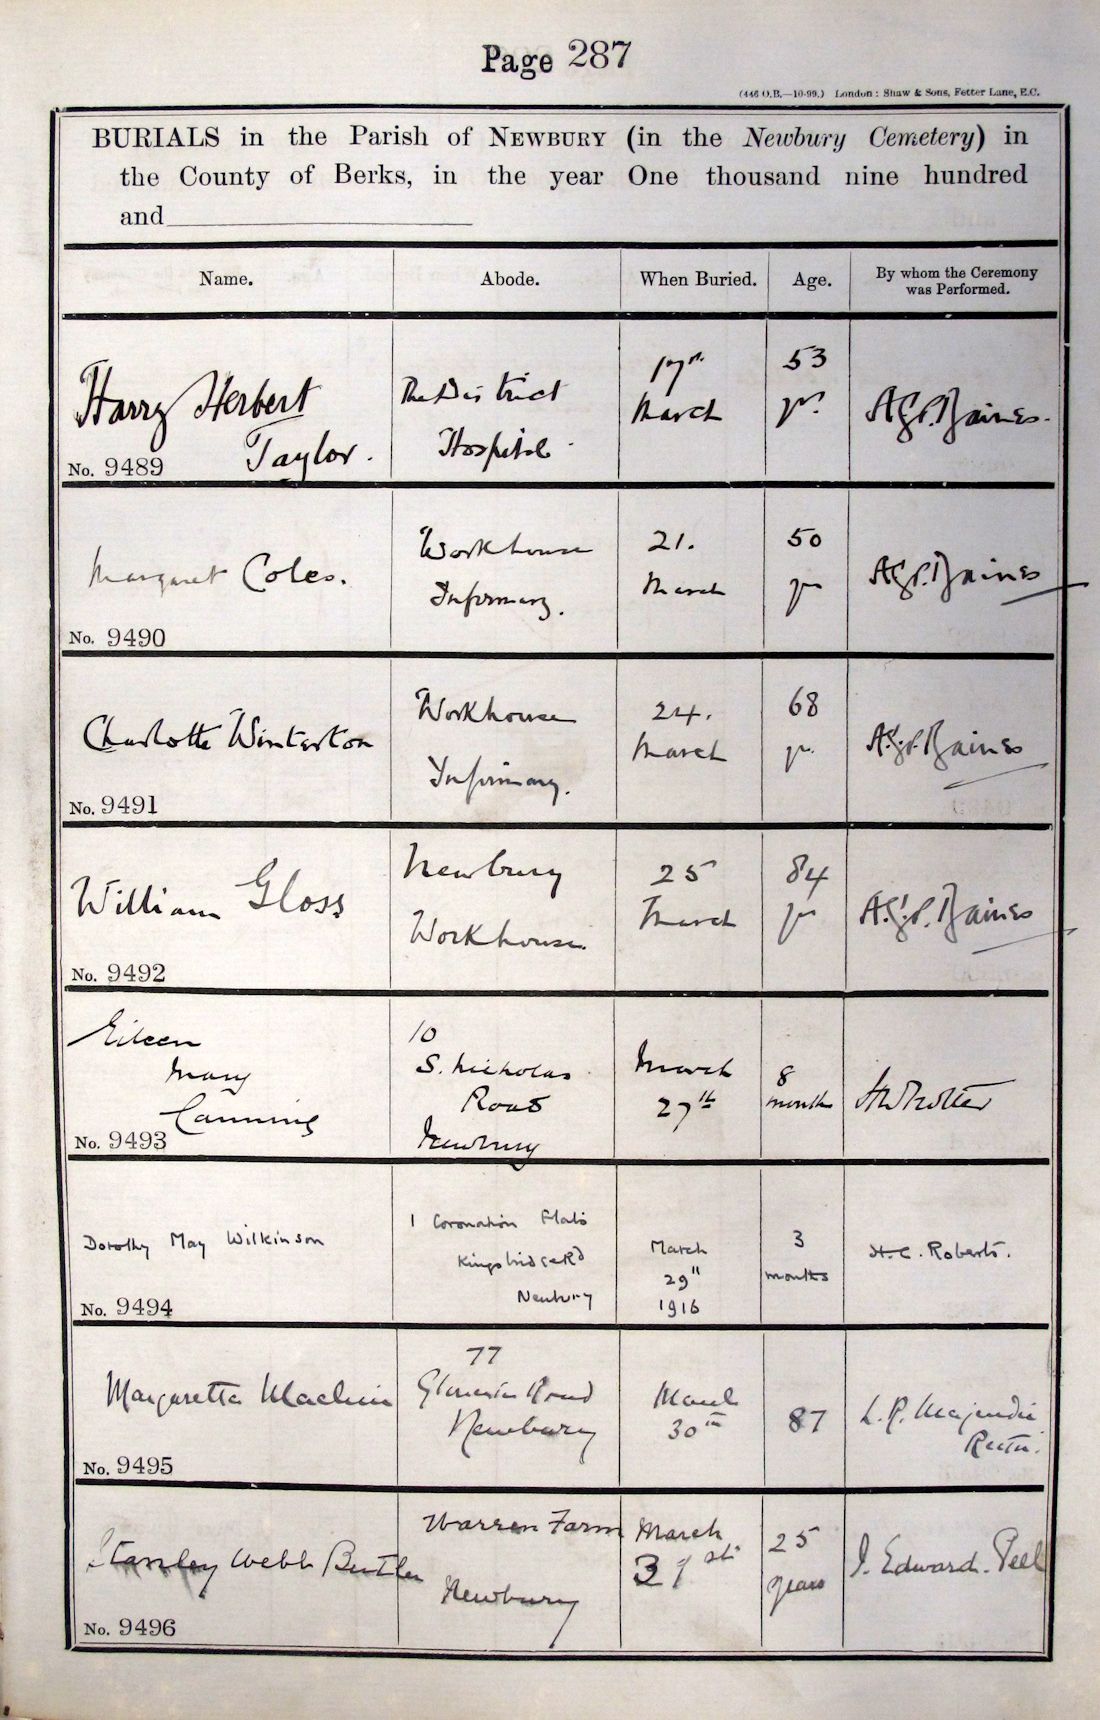 Page 287
(446 O.B.—10-99.) London: Shaw & Sons, Fetter Lane, E.C.
BURIALS in the Parish of NEWBURY (in the Newbury Cemetery) in
the County of Berks, in the year One thousand nine hundred
and
Name. Abode. When Buried. Age. By whom the Ceremony
was Performed.
Harry Herbert
Taylor.
No. 9489
The District
Hospital
17th
March
53
yrs.
A.G.P. Baines.
Margaret Coles.
No. 9490
Workhouse
Infirmary.
21.
March
50
yrs
A.G.P. Baines
Charlotte Winterton
No. 9491
Workhouse
Infirmary.
24.
March
68
yrs.
A.G.P. Baines
William Gloss
No. 9492
Newbury
Workhouse.
25
March
84
yrs
A.G.P. Baines
Eileen
Mary
Canning
No. 9493
10
S. Nicholas
Road
Newbury
March
27th
8
months
Trotter
Dorothy May Wilkinson
No. 9494
1 Coronation Flats
Kingsbridge Rd
Newbury
March
29"
1916
3
months
H.C. Roberts.
Margaretta Machin
No. 9495
77
Gloucester Road
Newbury
March
30th
87
L.R. Majendie
Rector.
Stanley Webb Butler
No. 9496
Warren Farm
Newbury
March
31st
25
years
J. Edward. Peel